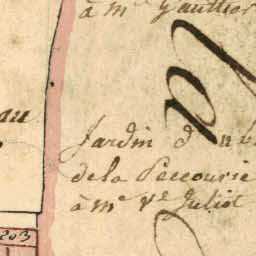 à mr Gaultier
au
Jardin d
de la Pecourie
à me ve Juliot
203